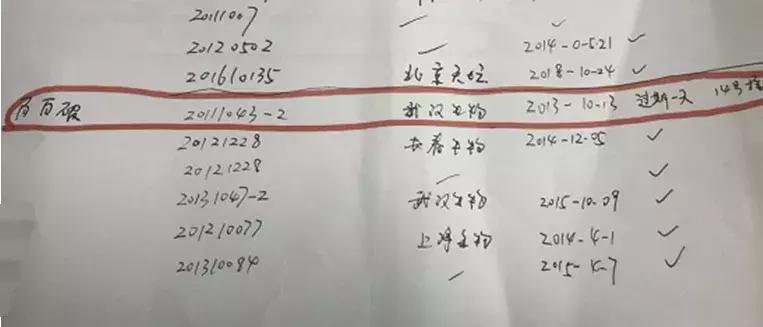 20111007 ✓
20120502 — 2014-0-5.21 ✓
201610135 北京天坛 2018-10-24 ✓
百百破 20111043-2 武汉生物 2013-10-13 过期一天 14号
20121228 长春生物 2014-12-05 ✓
20121228 — ✓
20131047-2 武汉生物 2015-10.09 ✓
201210077 上海生物 2014-4-1 ✓
201310084 — 2015-4-7 ✓